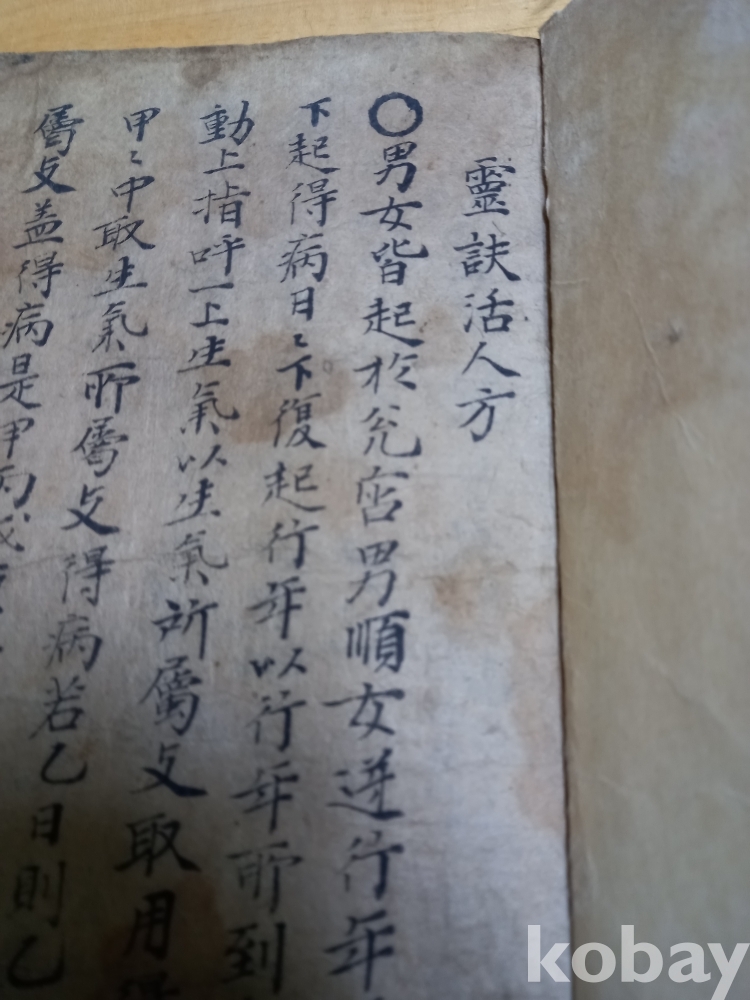 靈訣活人方
○男女皆起於兌宮男順女逆行年
下起得病日〻下復起行年以行年所到
動上指呼一上生氣以生氣所屬爻取用
甲〻中取生氣所屬爻得病若乙日則乙
屬爻盖得病是甲丙戊
kobay